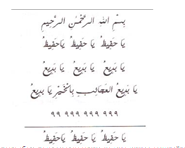 بِسْمِ اللهِ الرَّحْمٰنِ الرَّحِيْمِ
يَا حَفِيْظُ يَا حَفِيْظُ يَا حَفِيْظُ
يَا بَدِيْعُ يَا بَدِيْعُ يَا بَدِيْعُ
يَا بَدِيْعُ الْعَجَائِبِ بِالْخَيْرِ يَا بَدِيْعُ
٩٩ ٩٩٩ ٩٩٩ ٩٩٩
يَا حَفِيْظُ يَا حَفِيْظُ يَا حَفِيْظُ